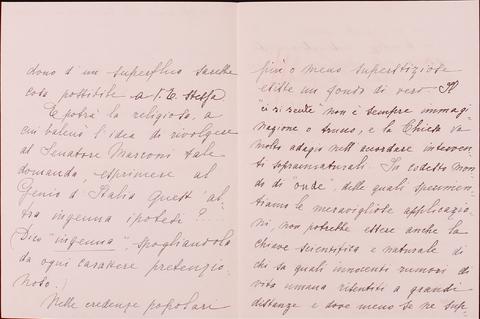 dono d'un superfluo sarebbe
cosa possibile a S. E. stessa
E potrà la religiosa, a
cui balenò l'idea di rivolgere
al Senatore Marconi tale
domanda, esprimere al
Genio d'Italia quest'al-
tra ingenua ipotesi?...
(Dico "ingenua", spogliandola
da ogni carattere pretenzio-
noso.)
Nelle credenze popolari
più o meno superstiziose
esiste un fondo di vero. Il
"ci si sente" non è sempre immagi-
nazione o trucco, e la Chiesa va
molto adagio nell'accordare interven-
ti soprannaturali. In codesto mon-
do di "onde", delle quali sperimen-
tiamo le meravigliose applicazio-
ni, non potrebbe essere anche la
chiave scientifica e naturale di
chi sa quali innocenti rumori di
vita umana risentiti a grandi
distanze e dove meno se ne sup-